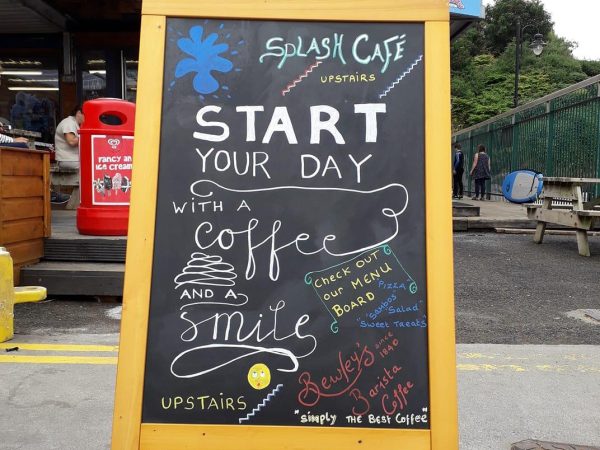 SPLASH CAFÉ
UPSTAIRS
START
YOUR DAY
WITH A
coffee
AND A
smile
Check OUT
our MENU
BOARD
PIZZA
"SAMBOS" Salad"
"Sweet Treats"
Bewley's since 1840
Barista
Coffee
"simply THE BEST Coffee"
UPSTAIRS
Fancy an
ice cream